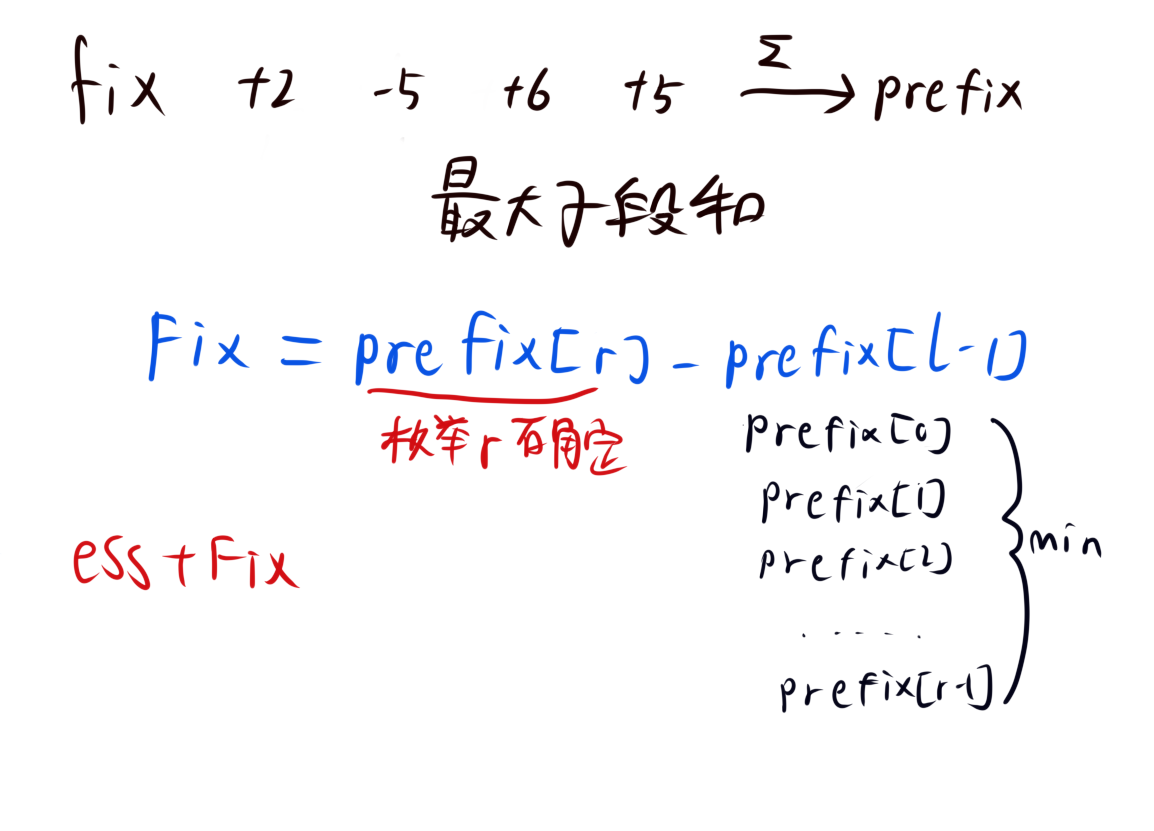 fix +2 -5 +6 +5 Σ → prefix
最大子段和
Fix = prefix[r] - prefix[l-1]
枚举r 确定
prefix[0]
prefix[1]
prefix[2]
min
ess + Fix
......
prefix[r-1]